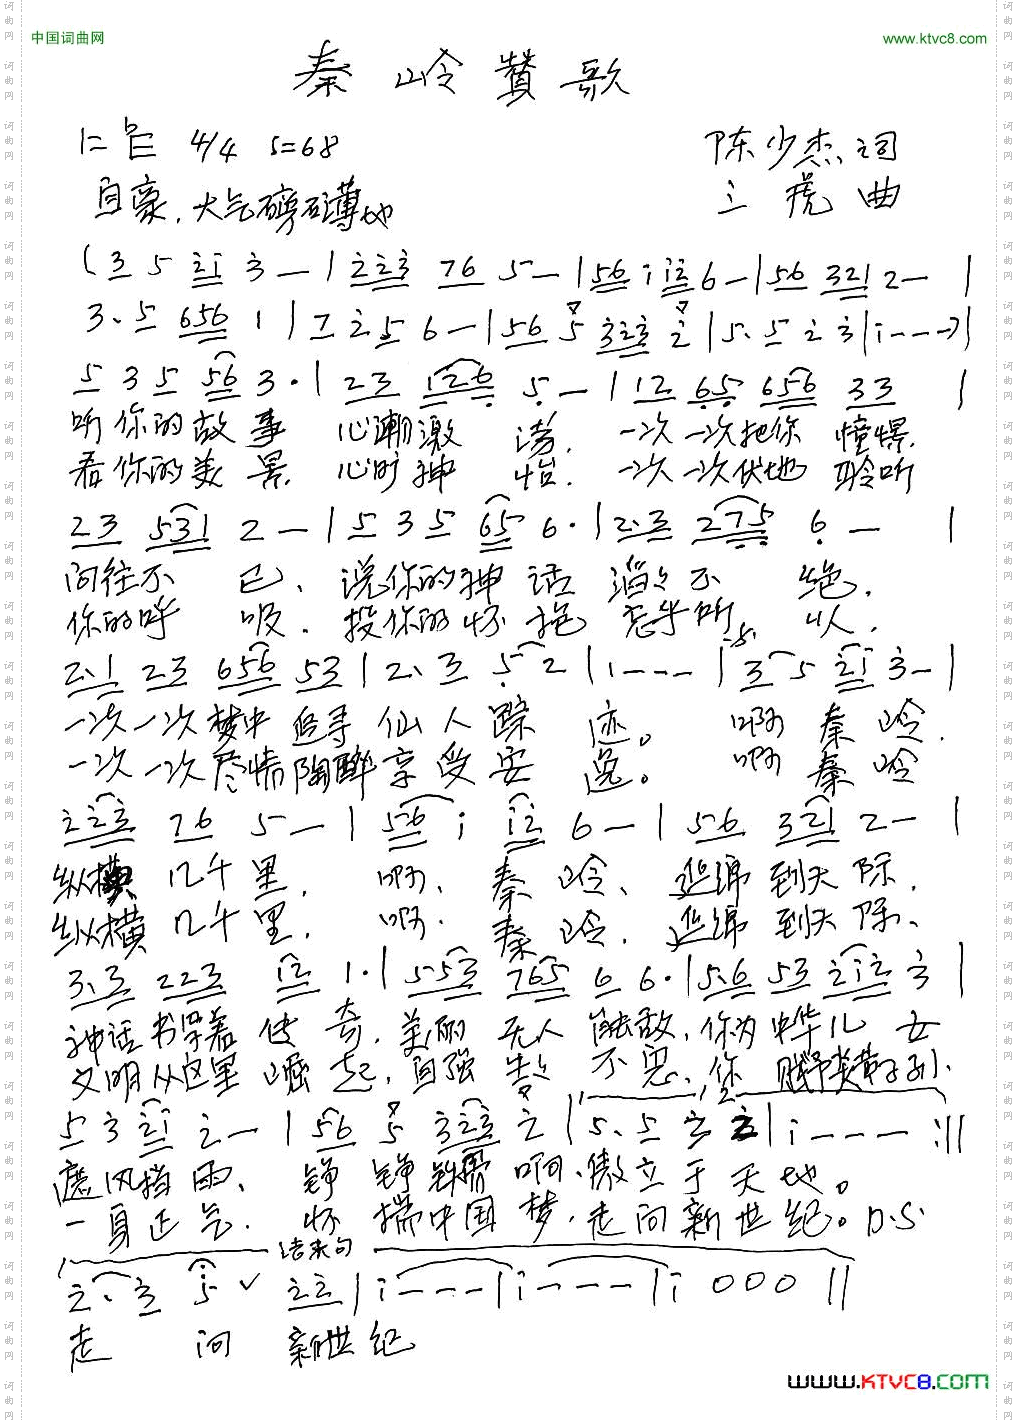 中国词曲网 www.ktvc8.com
秦岭赞歌
1=bE 4/4 5=68 陈少杰词
自豪,大气磅礴地 三虎曲
(3 5 2i 3 — | 223 76 5 — | 56 i i2 6 — | 56 321 2 — |
3. 5 656 1 | 7 2 5 6 — | 56 5 323 2 | 5. 5 2 3 | i - - - ) |
5 3 5 56 3. | 23 126 5 — | 12 65 656 33 |
听你的故事 心潮激荡. 一次一次把你憧憬.
看你的美景. 心旷神怡. 一次一次伏地聆听
23 531 2 — | 5 3 5 65 6. | 2.3 275 6 — |
向往不已、说你的神话滔滔不绝.
你的呼吸. 投你的怀抱 怎乎所以.
2.1 23 656 53 | 2. 3 5 2 | 1 - - - | 3 5 2i 3 — |
一次一次梦中追寻仙人踪迹。 啊 秦岭.
一次一次尽情陶醉享受安逸。 啊 秦岭
223 76 5 — | 56 i i2 6 — | 56 321 2 — |
纵横几千里. 啊、秦岭、延绵到天际.
纵横几千里. 啊. 秦岭. 延绵到天际、
3.3 223 12 1. | 553 765 6 6. | 5.6 53 2i2 3 |
神话书写着传奇. 美丽无人能敌. 你为中华儿女
文明从这里崛起. 自强生生不息、你赋予炎黄子孙.
1, 2
5 3 2i 2 — | 56 5 323 2 | 5. 5 3 2 | i - - - :||
遮风挡雨、铮铮铁骨啊、傲立于天地。
一身正气. 怀揣中国梦. 走向新世纪。D.S.
结束句
2. 3 5 ∨ 22 | i - - - | i - - - | i 0 0 0 ||
走向新世纪
www.KTVC8.com